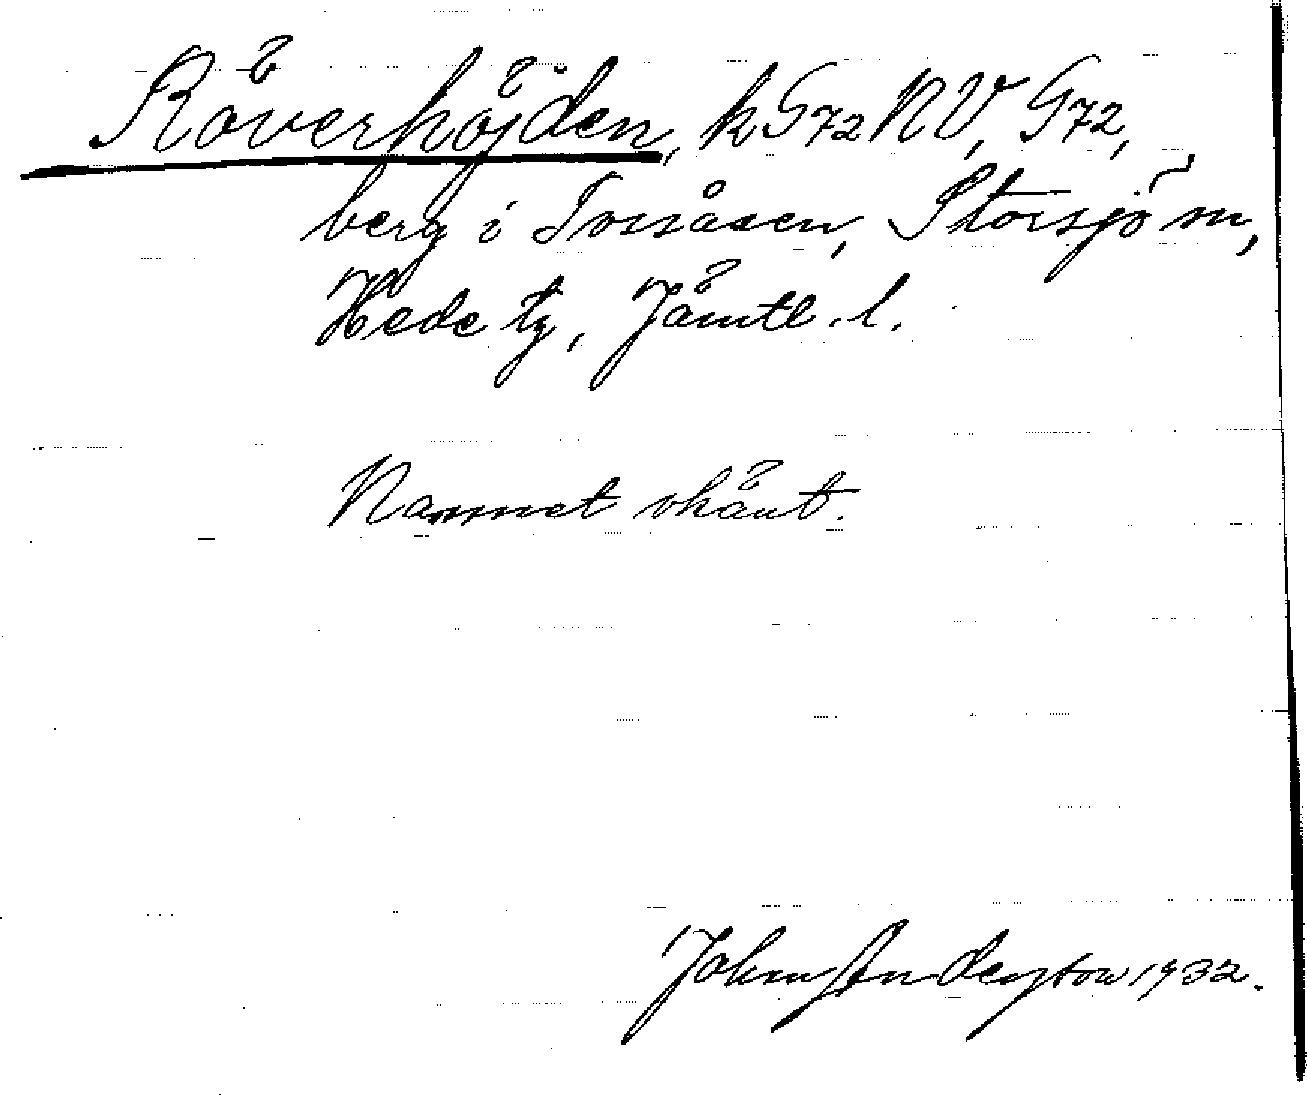 Röverhöjden, k G72 NV, G72,
berg i Torsåsen, Storsjö sn,
Hede tg, Jämtl. l.
Namnet okänt.
John Anderson 1932.